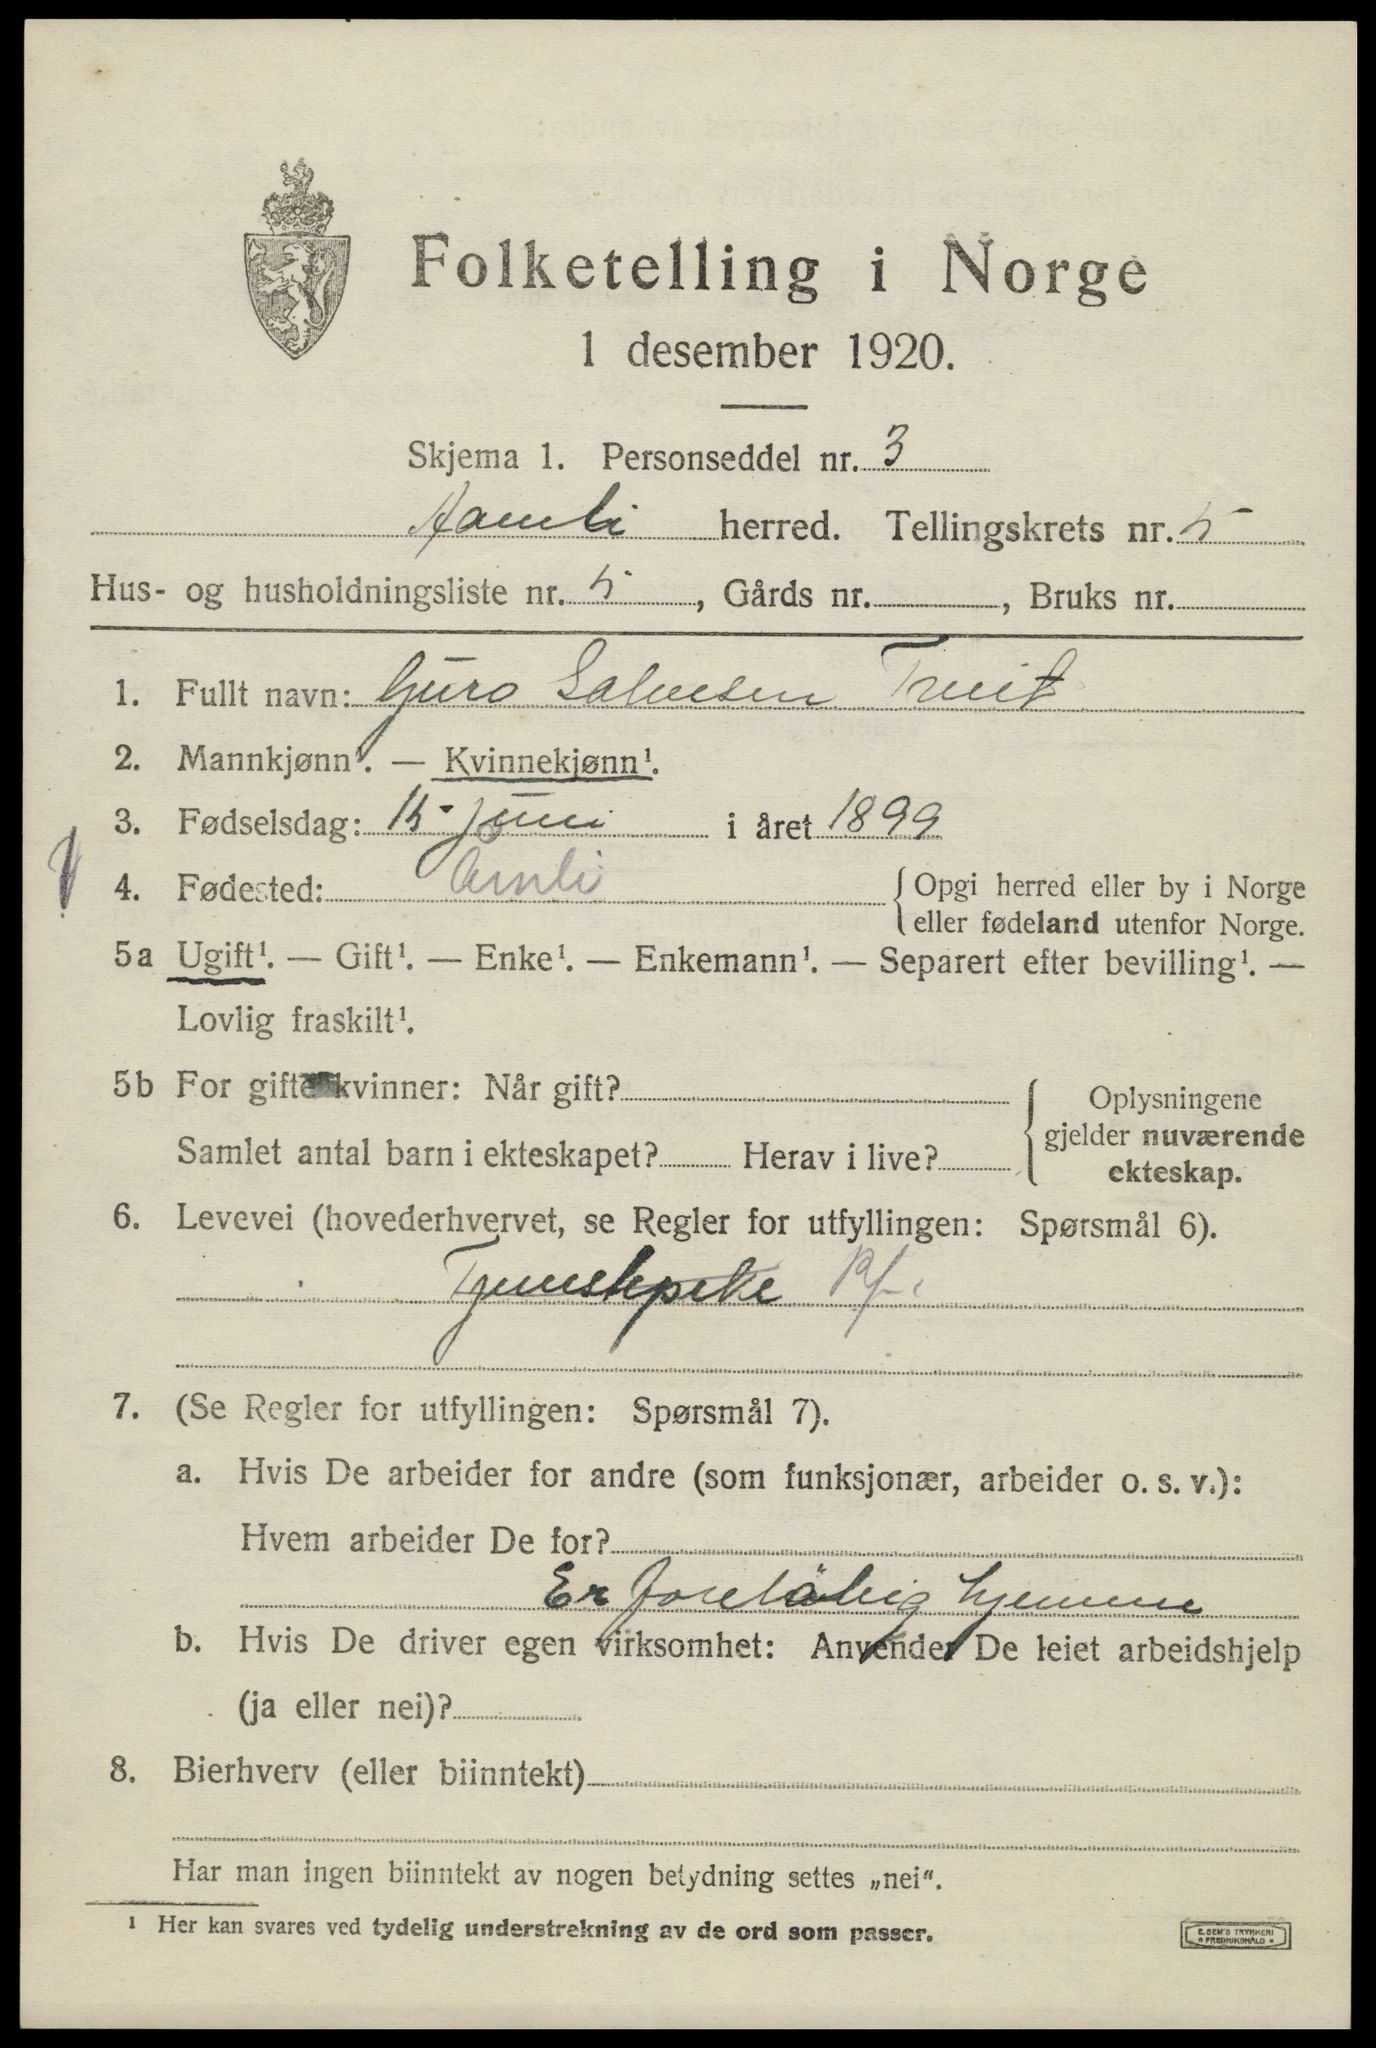 Folketelling i Norge
1 desember 1920.
Skjema 1. Personseddel nr. 3
Aamli herred. Tellingskrets nr. 5
Hus- og husholdningsliste nr. 5, Gårds nr. , Bruks nr.
1. Fullt navn: Guro Salvesen
2. Mannkjønn¹. — Kvinnekjønn¹.
3. Fødselsdag: 15 juni i året 1899
4. Fødested: Åmli { Opgi herred eller by i Norge
eller fødeland utenfor Norge.
5a Ugift¹. — Gift¹. — Enke¹. — Enkemann¹. — Separert efter bevilling¹. —
Lovlig fraskilt¹.
5b For gifte kvinner: Når gift?
Samlet antal barn i ekteskapet? Herav i live?
Oplysningene
gjelder nuværende
ekteskap.
6. Levevei (hovederhvervet, se Regler for utfyllingen: Spørsmål 6).
Tjenestepike
7. (Se Regler for utfyllingen: Spørsmål 7).
a. Hvis De arbeider for andre (som funksjonær, arbeider o. s. v.):
Hvem arbeider De for?
Er foreløbig hjemme
b. Hvis De driver egen virksomhet: Anvender De leiet arbeidshjelp
(ja eller nei)?
8. Bierhverv (eller biinntekt)
Har man ingen biinntekt av nogen betydning settes „nei".
¹ Her kan svares ved tydelig understrekning av de ord som passer.
E. SEM'S TRYKKERI
FREDRIKSHALD